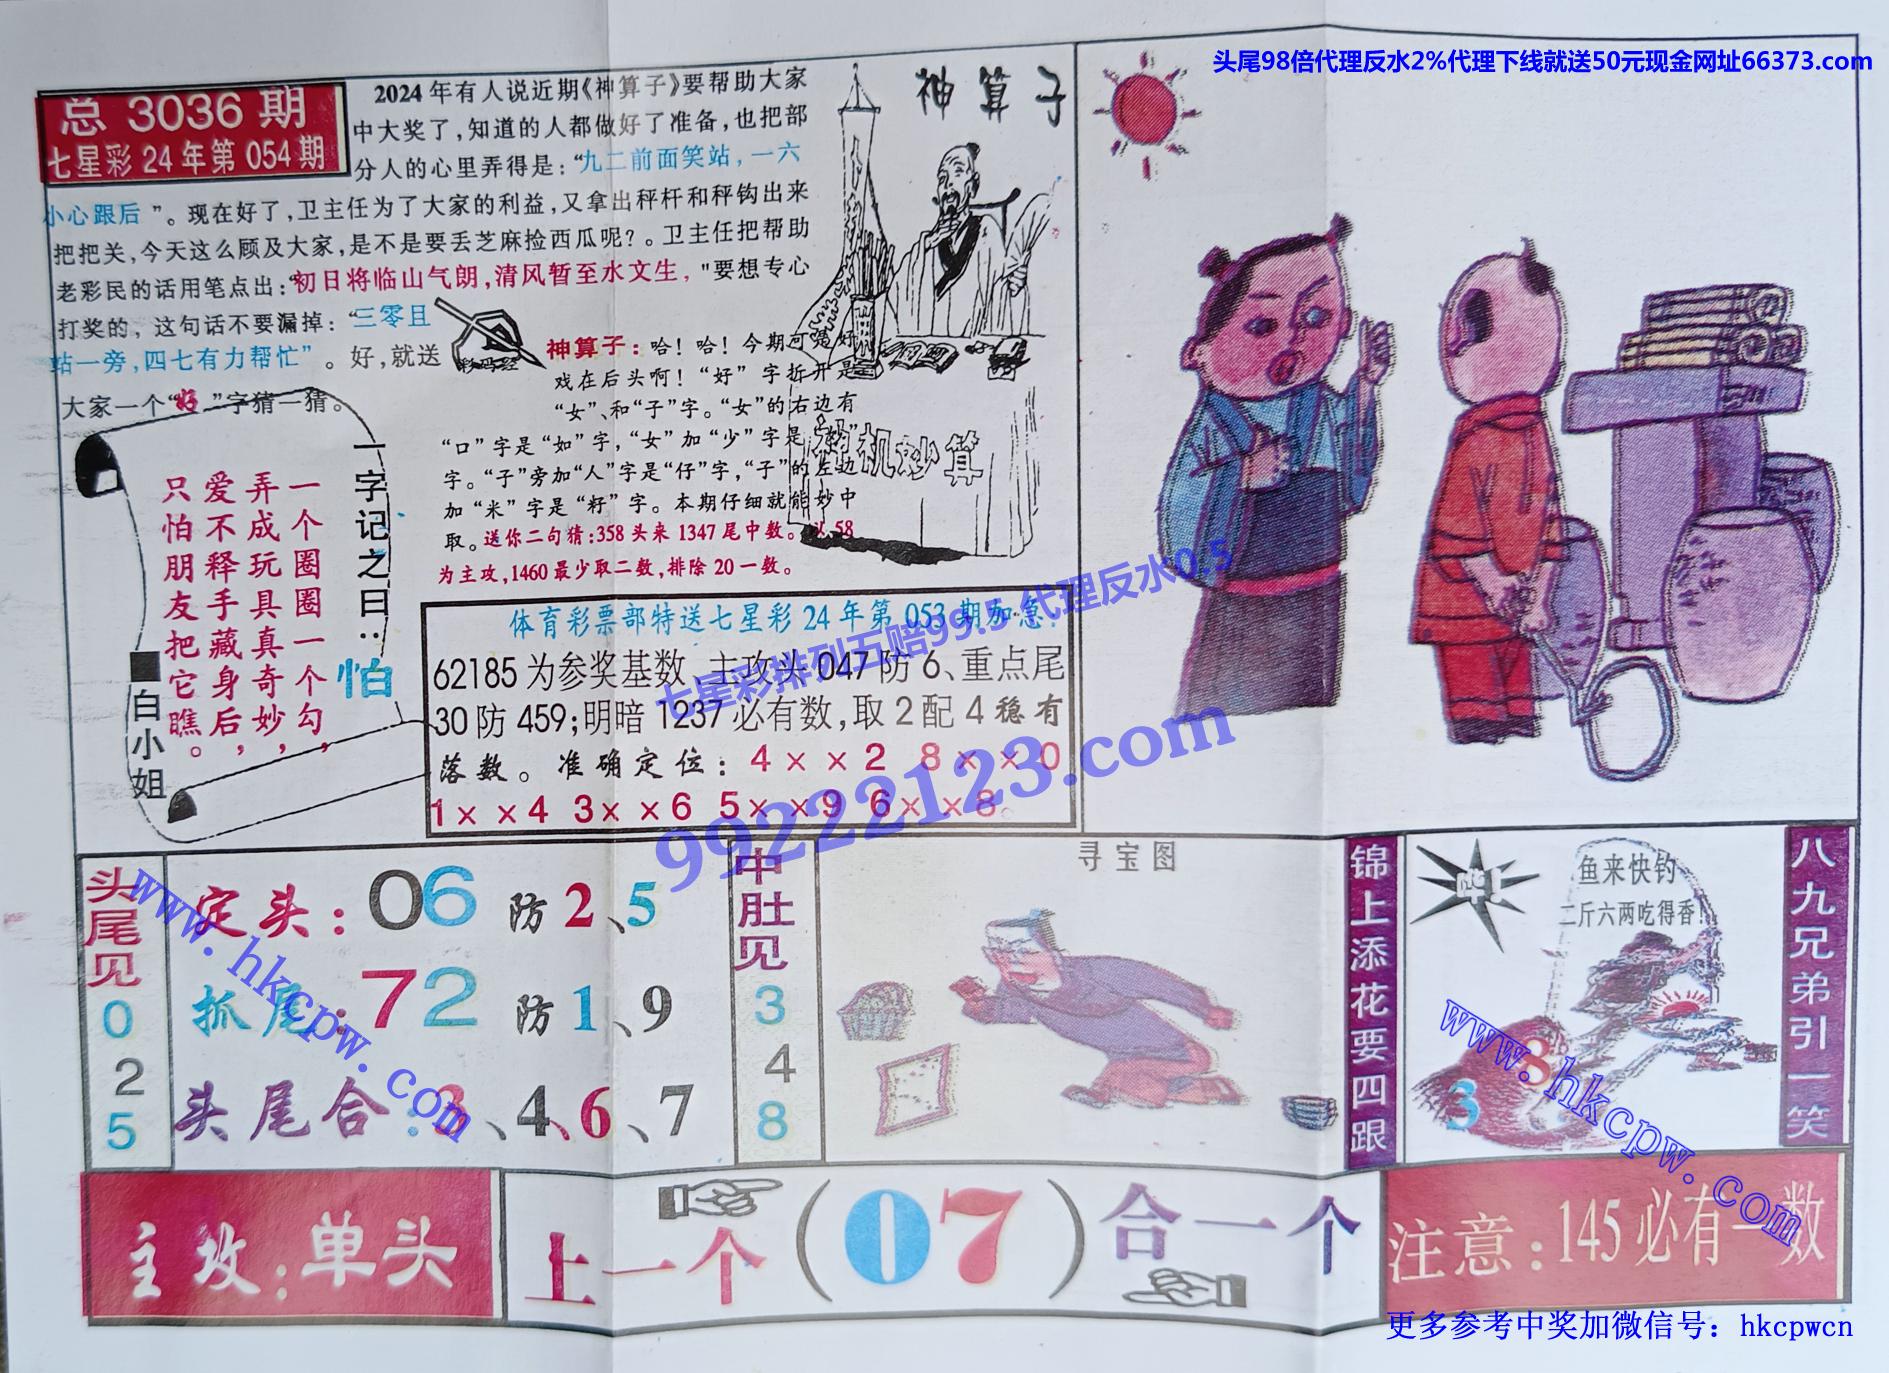 头尾98倍代理反水2%代理下线就送50元现金网址66373.com
总 3036 期
七星彩 24 年第 054 期
2024 年有人说近期《神算子》要帮助大家
中大奖了,知道的人都做好了准备,也把部
分人的心里弄得是:“九二前面笑站,一六
小心跟后”。现在好了,卫主任为了大家的利益,又拿出秤杆和秤钩出来
把把关,今天这么顾及大家,是不是要丢芝麻捡西瓜呢?。卫主任把帮助
老彩民的话用笔点出:“初日将临山气朗,清风暂至水文生,"要想专心
打奖的,这句话不要漏掉:“三零且
站一旁,四七有力帮忙”。好,就送
大家一个“好”字猜一猜。
彩码经
神算子
神机妙算
神算子:哈!哈!今期可是好
戏在后头啊!“好”字折开是
“女”、和“子”字。“女”的右边有
“口”字是“如”字,“女”加“少”字是“妙”
字。“子”旁加“人”字是“仔”字,“子”的左边
加“米”字是“籽”字。本期仔细就能妙中
取。送你二句猜:358 头来 1347 尾中数。又 58
为主攻,1460 最少取二数,排除 20 一数。
一字记之曰:怕
一个圈圈一个勾,
弄成玩具真奇妙,
爱不释手藏身后,
只怕朋友把它瞧。
■白小姐
体育彩票部特送七星彩 24 年第 053 期加急:
62185 为参奖基数、主攻头 047 防 6、重点尾
30 防 459;明暗 1237 必有数,取 2 配 4 稳有
落数。准确定位:4××2 8××0
1××4 3××6 5××9 6××8。
七星彩排列五赔99.5 代理反水0.5
99222123.com
头尾见
0
2
5
定头:06 防 2、5
抓尾:72 防 1、9
头尾合:3、4、6、7
www.hkcpw.com
中肚见
3
4
8
寻宝图
锦上添花要四跟
鱼来快钓
二斤六两吃得香!
3
8
八九兄弟引一笑
www.hkcpw.com
主攻:单头
上一个(07)合一个
注意:145 必有一数
更多参考中奖加微信号:hkcpwcn